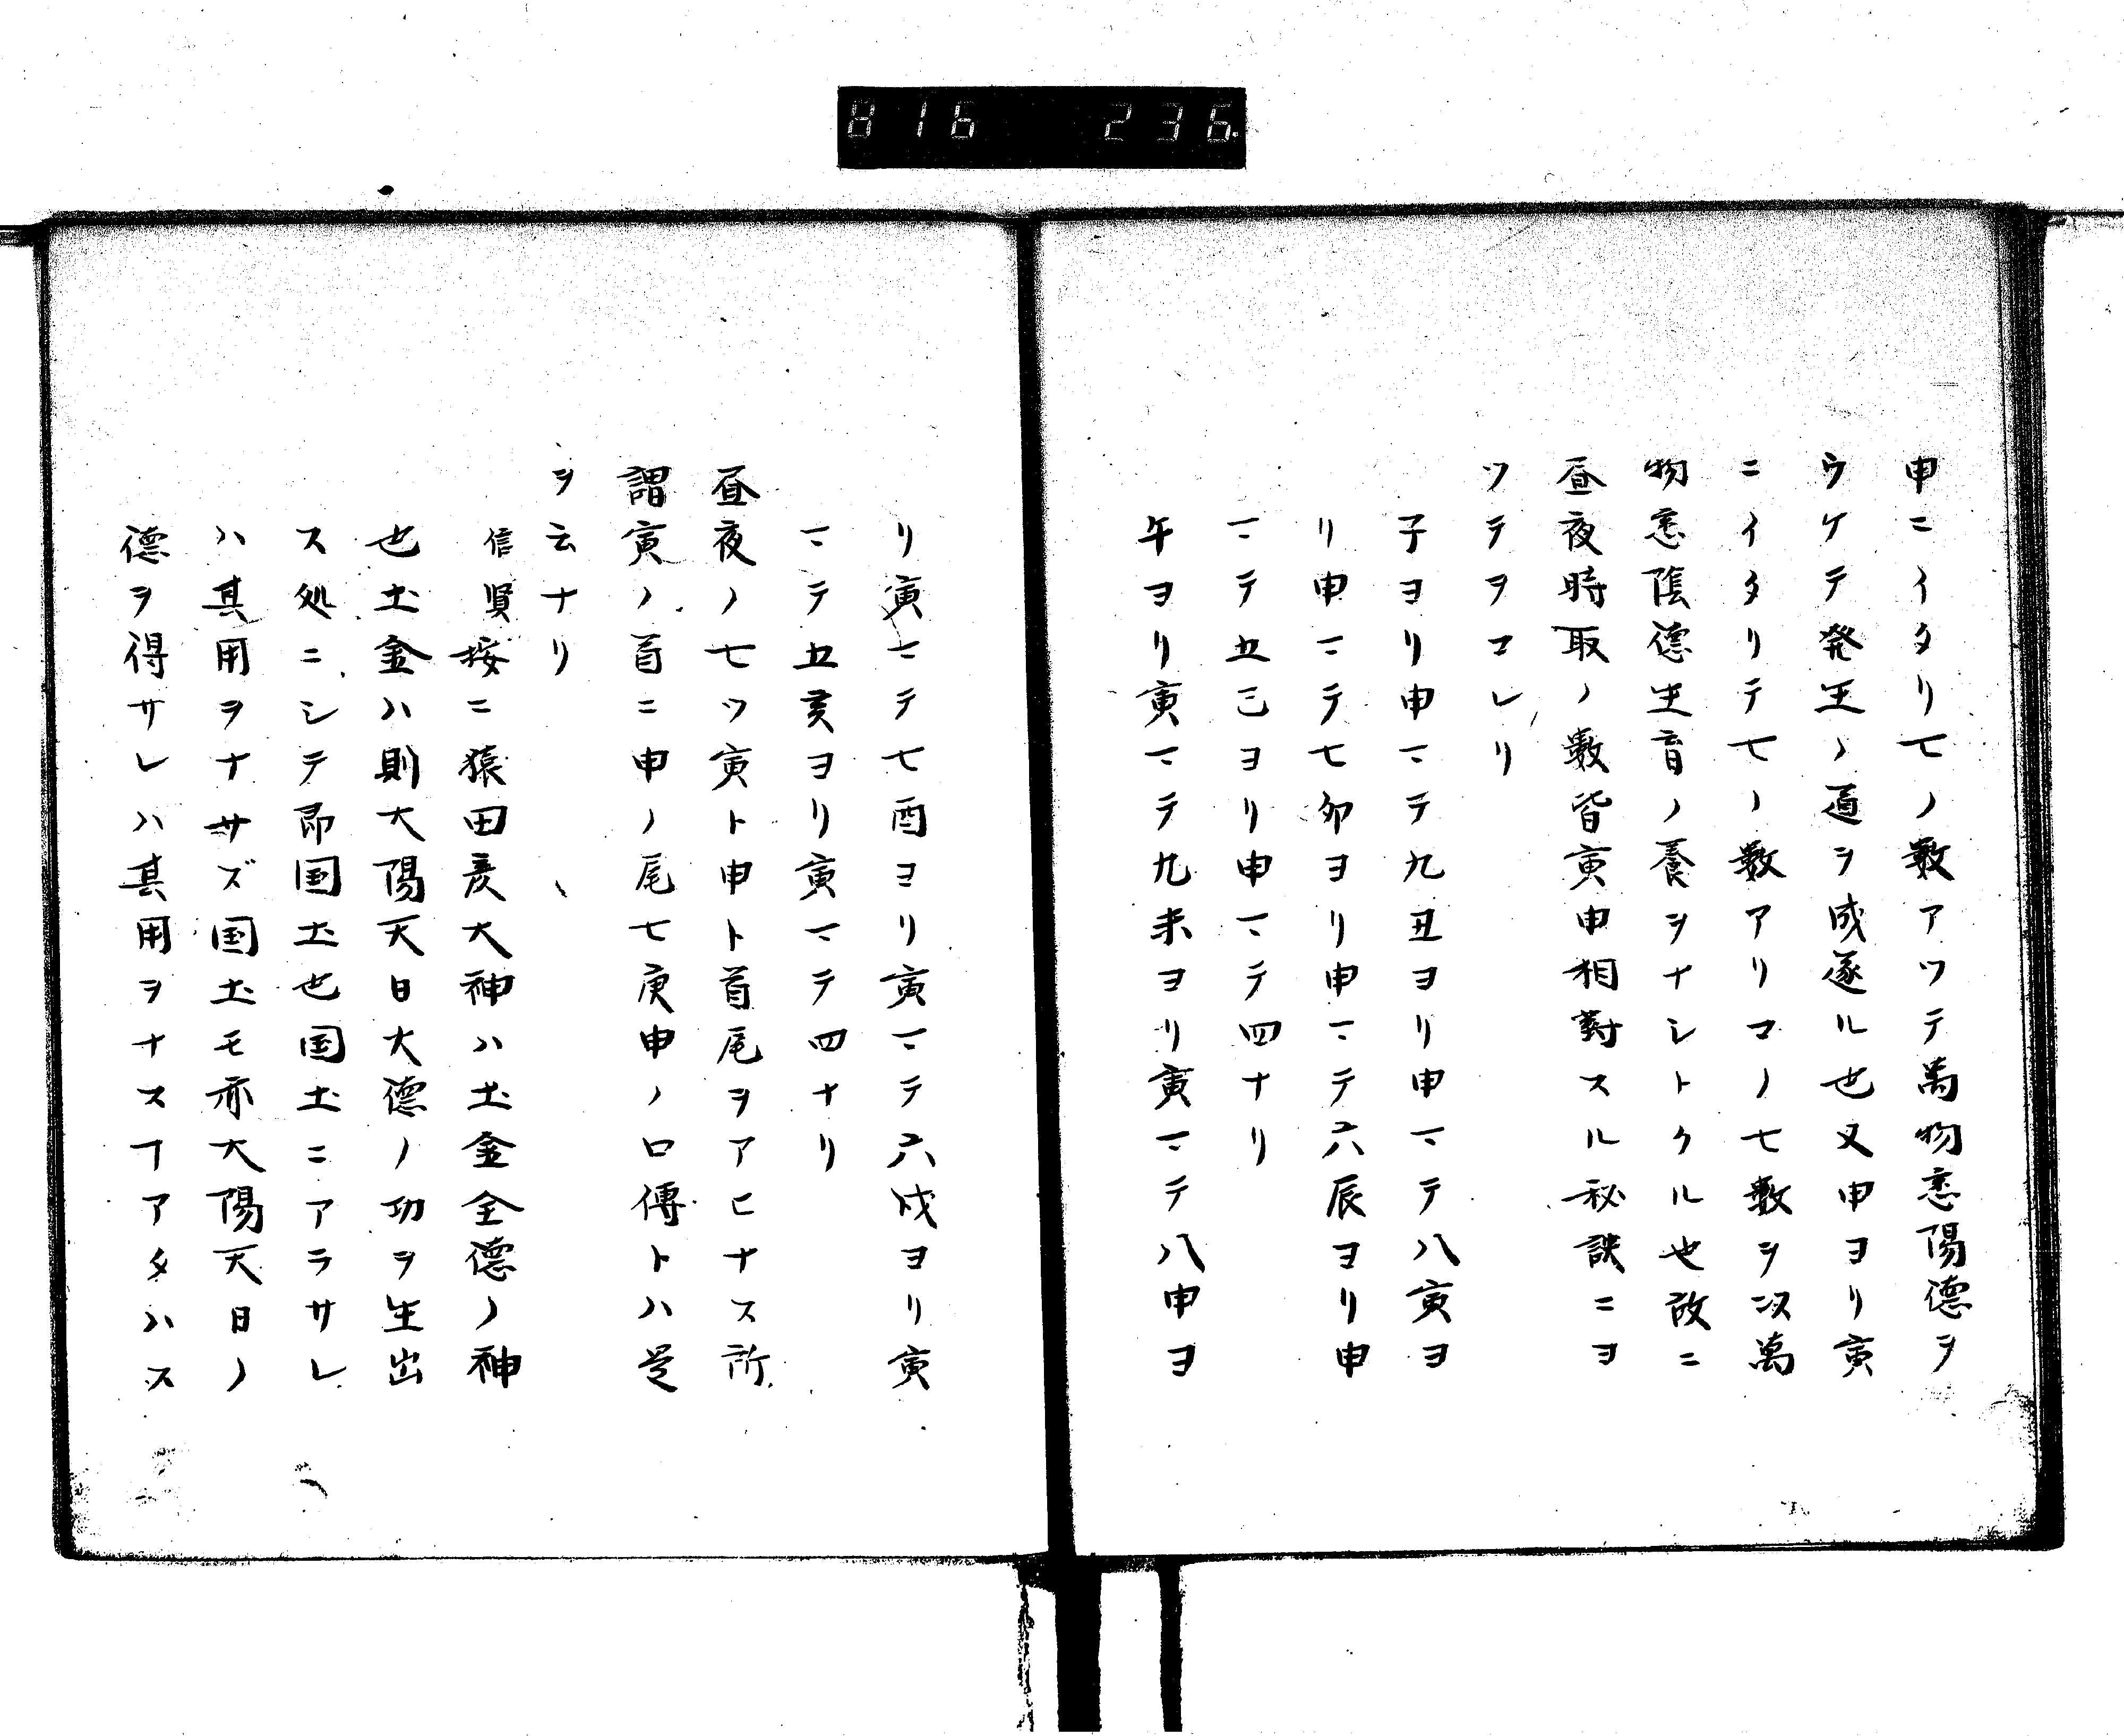 816 236
申ニイタリ七ノ数アツテ萬物悉陽德ヲ
ウケテ発生ノ道ヲ成遂ル也又申ヨリ寅
ニイタリテ七ノ数アリコノ七数ヲ以萬
物悉陰德生育ノ養ヲナシトクル也故ニ
昼夜時取ノ数皆寅申相對スル秘訣ニヨ
ツテヲコレリ
子ヨリ申マテ九丑ヨリ申マテ八寅ヨ
リ申マテ七卯ヨリ申マテ六辰ヨリ申
マテ五巳ヨリ申マテ四ナリ
午ヨリ寅マテ九未ヨリ寅マテ八申ヨ
リ寅マテ七酉ヨリ寅マテ六戌ヨリ寅
マテ五亥ヨリ寅マテ四ナリ
昼夜ノ七ツ寅ト申ト首尾ヲアヒナス所
謂寅ノ首ニ申ノ尾七庚申ノ口傳トハ是
ヲ云ナリ
信賢按ニ猿田彦大神ハ土金全德ノ神
也土金ハ則大陽天日大德ノ功ヲ生出
ス処ニシテ即国土也国土ニアラサレ
ハ其用ヲナサズ国土モ亦大陽天日ノ
德ヲ得サレハ其用ヲナスヿアタハス